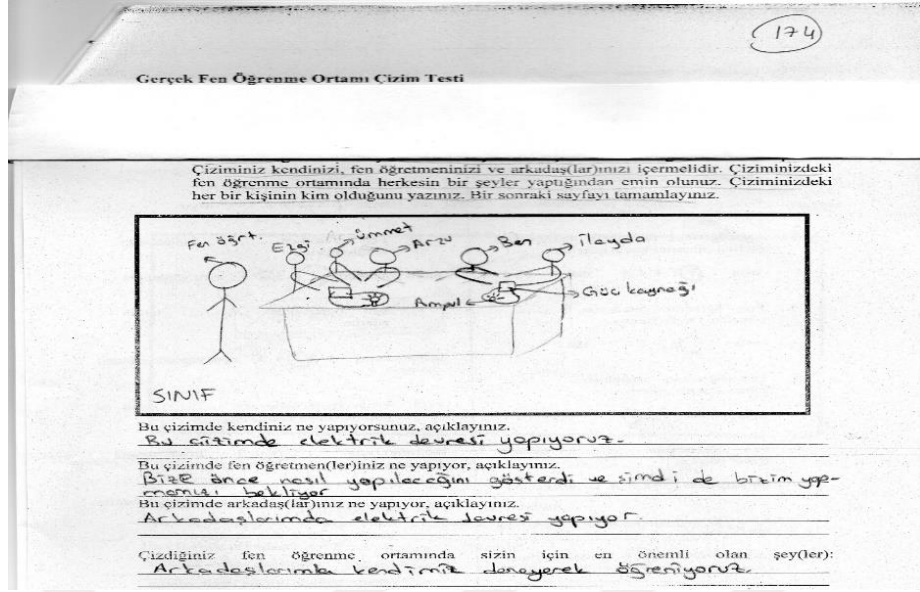 174
Gerçek Fen Öğrenme Ortamı Çizim Testi
Çiziminiz kendinizi, fen öğretmeninizi ve arkadaş(lar)ınızı içermelidir. Çiziminizdeki
fen öğrenme ortamında herkesin bir şeyler yaptığından emin olunuz. Çiziminizdeki
her bir kişinin kim olduğunu yazınız. Bir sonraki sayfayı tamamlayınız.
Fen öğrt. Ezgi Ümmet Arzu Ben İlayda
Ampul Güc kaynağı
SINIF
Bu çizimde kendiniz ne yapıyorsunuz, açıklayınız.
Bu çizimde elektrik devresi yapıyoruz.
Bu çizimde fen öğretmen(ler)iniz ne yapıyor, açıklayınız.
Bize önce nasıl yapılacağını gösterdi ve şimdi de bizim yap-
mamızı bekliyor
Bu çizimde arkadaş(lar)ınız ne yapıyor, açıklayınız.
Arkadaşlarımda elektrik devresi yapıyor.
Çizdiğiniz fen öğrenme ortamında sizin için en önemli olan şey(ler):
Arkadaşlarımla kendimiz deneyerek öğreniyoruz.